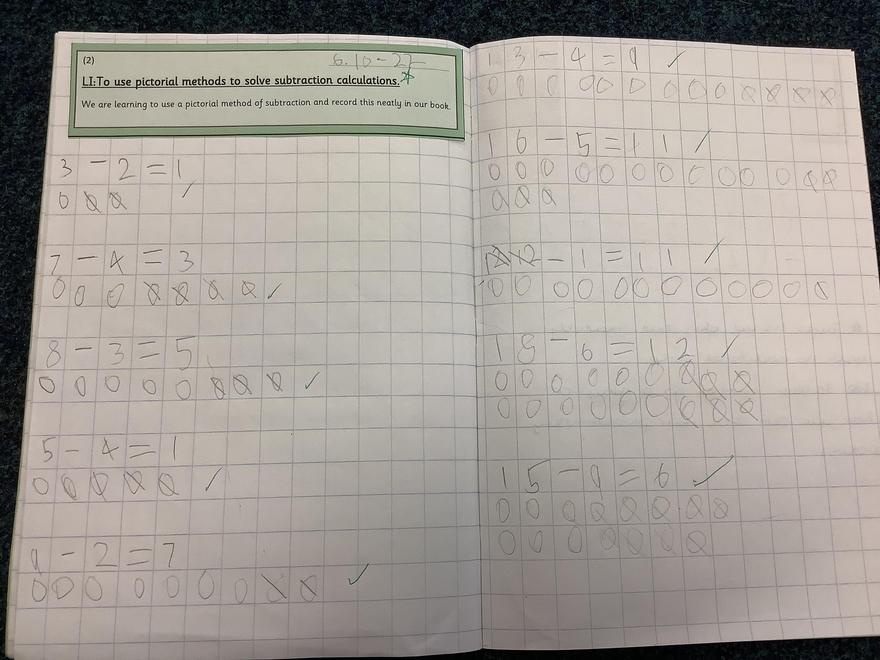 (2)
6.10-22
LI:To use pictorial methods to solve subtraction calculations.
We are learning to use a pictorial method of subtraction and record this neatly in our book.
3 - 2 = 1
7 - 4 = 3
8 - 3 = 5
5 - 4 = 1
9 - 2 = 7
13 - 4 = 9
16 - 5 = 11
12 - 1 = 11
18 - 6 = 12
15 - 9 = 6